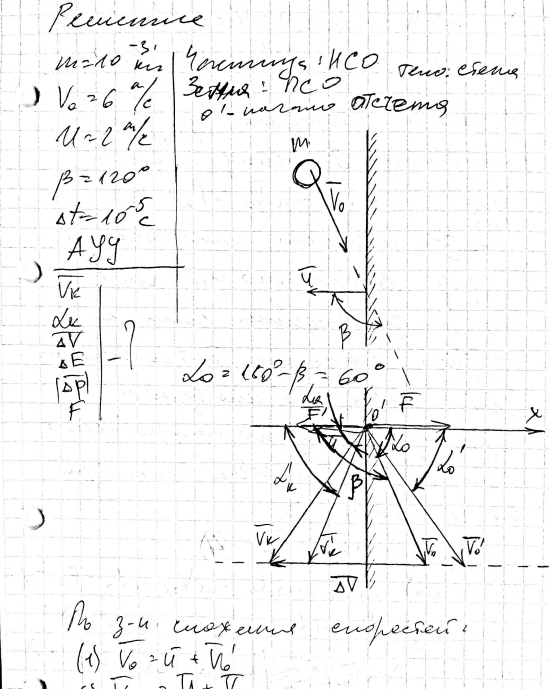 Решение
m=10⁻³ кг
V₀=6 м/с
U=2 м/с
β=120°
Δt=10⁻⁵ с
АУУ
V̅к
αк
Δ̅V̅
ΔE
|Δ̅p̅|
F
- ?
Частица: ИСО тело: стена
Земля: ПСО
0'-начало отсчета
m
V̅₀
u̅
β
α₀ = 180°-β = 60°
αк
F̅' 0' F̅
x
u̅ α₀ α₀'
α'к β
V̅к V̅'к V̅₀ V̅₀'
Δ̅V̅
По з-н сложения скоростей:
(1) V̅₀ = u̅ + V̅₀'